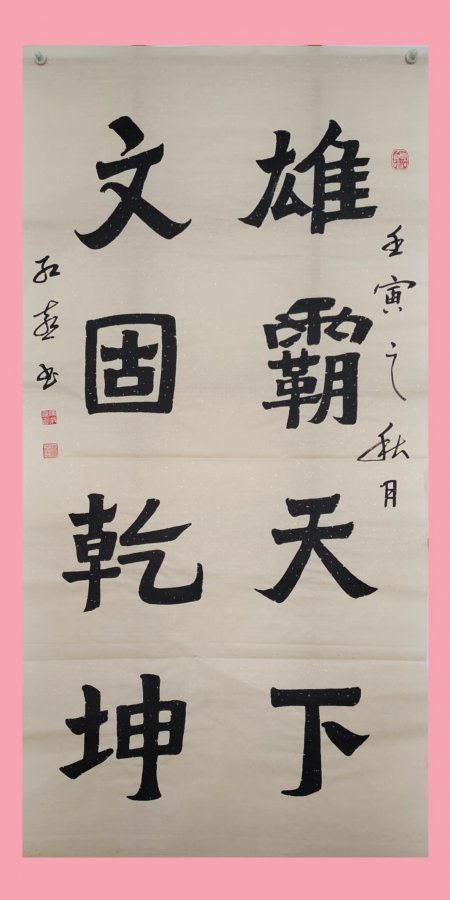 壬寅之秋月
雄霸天下
文固乾坤
红喜书